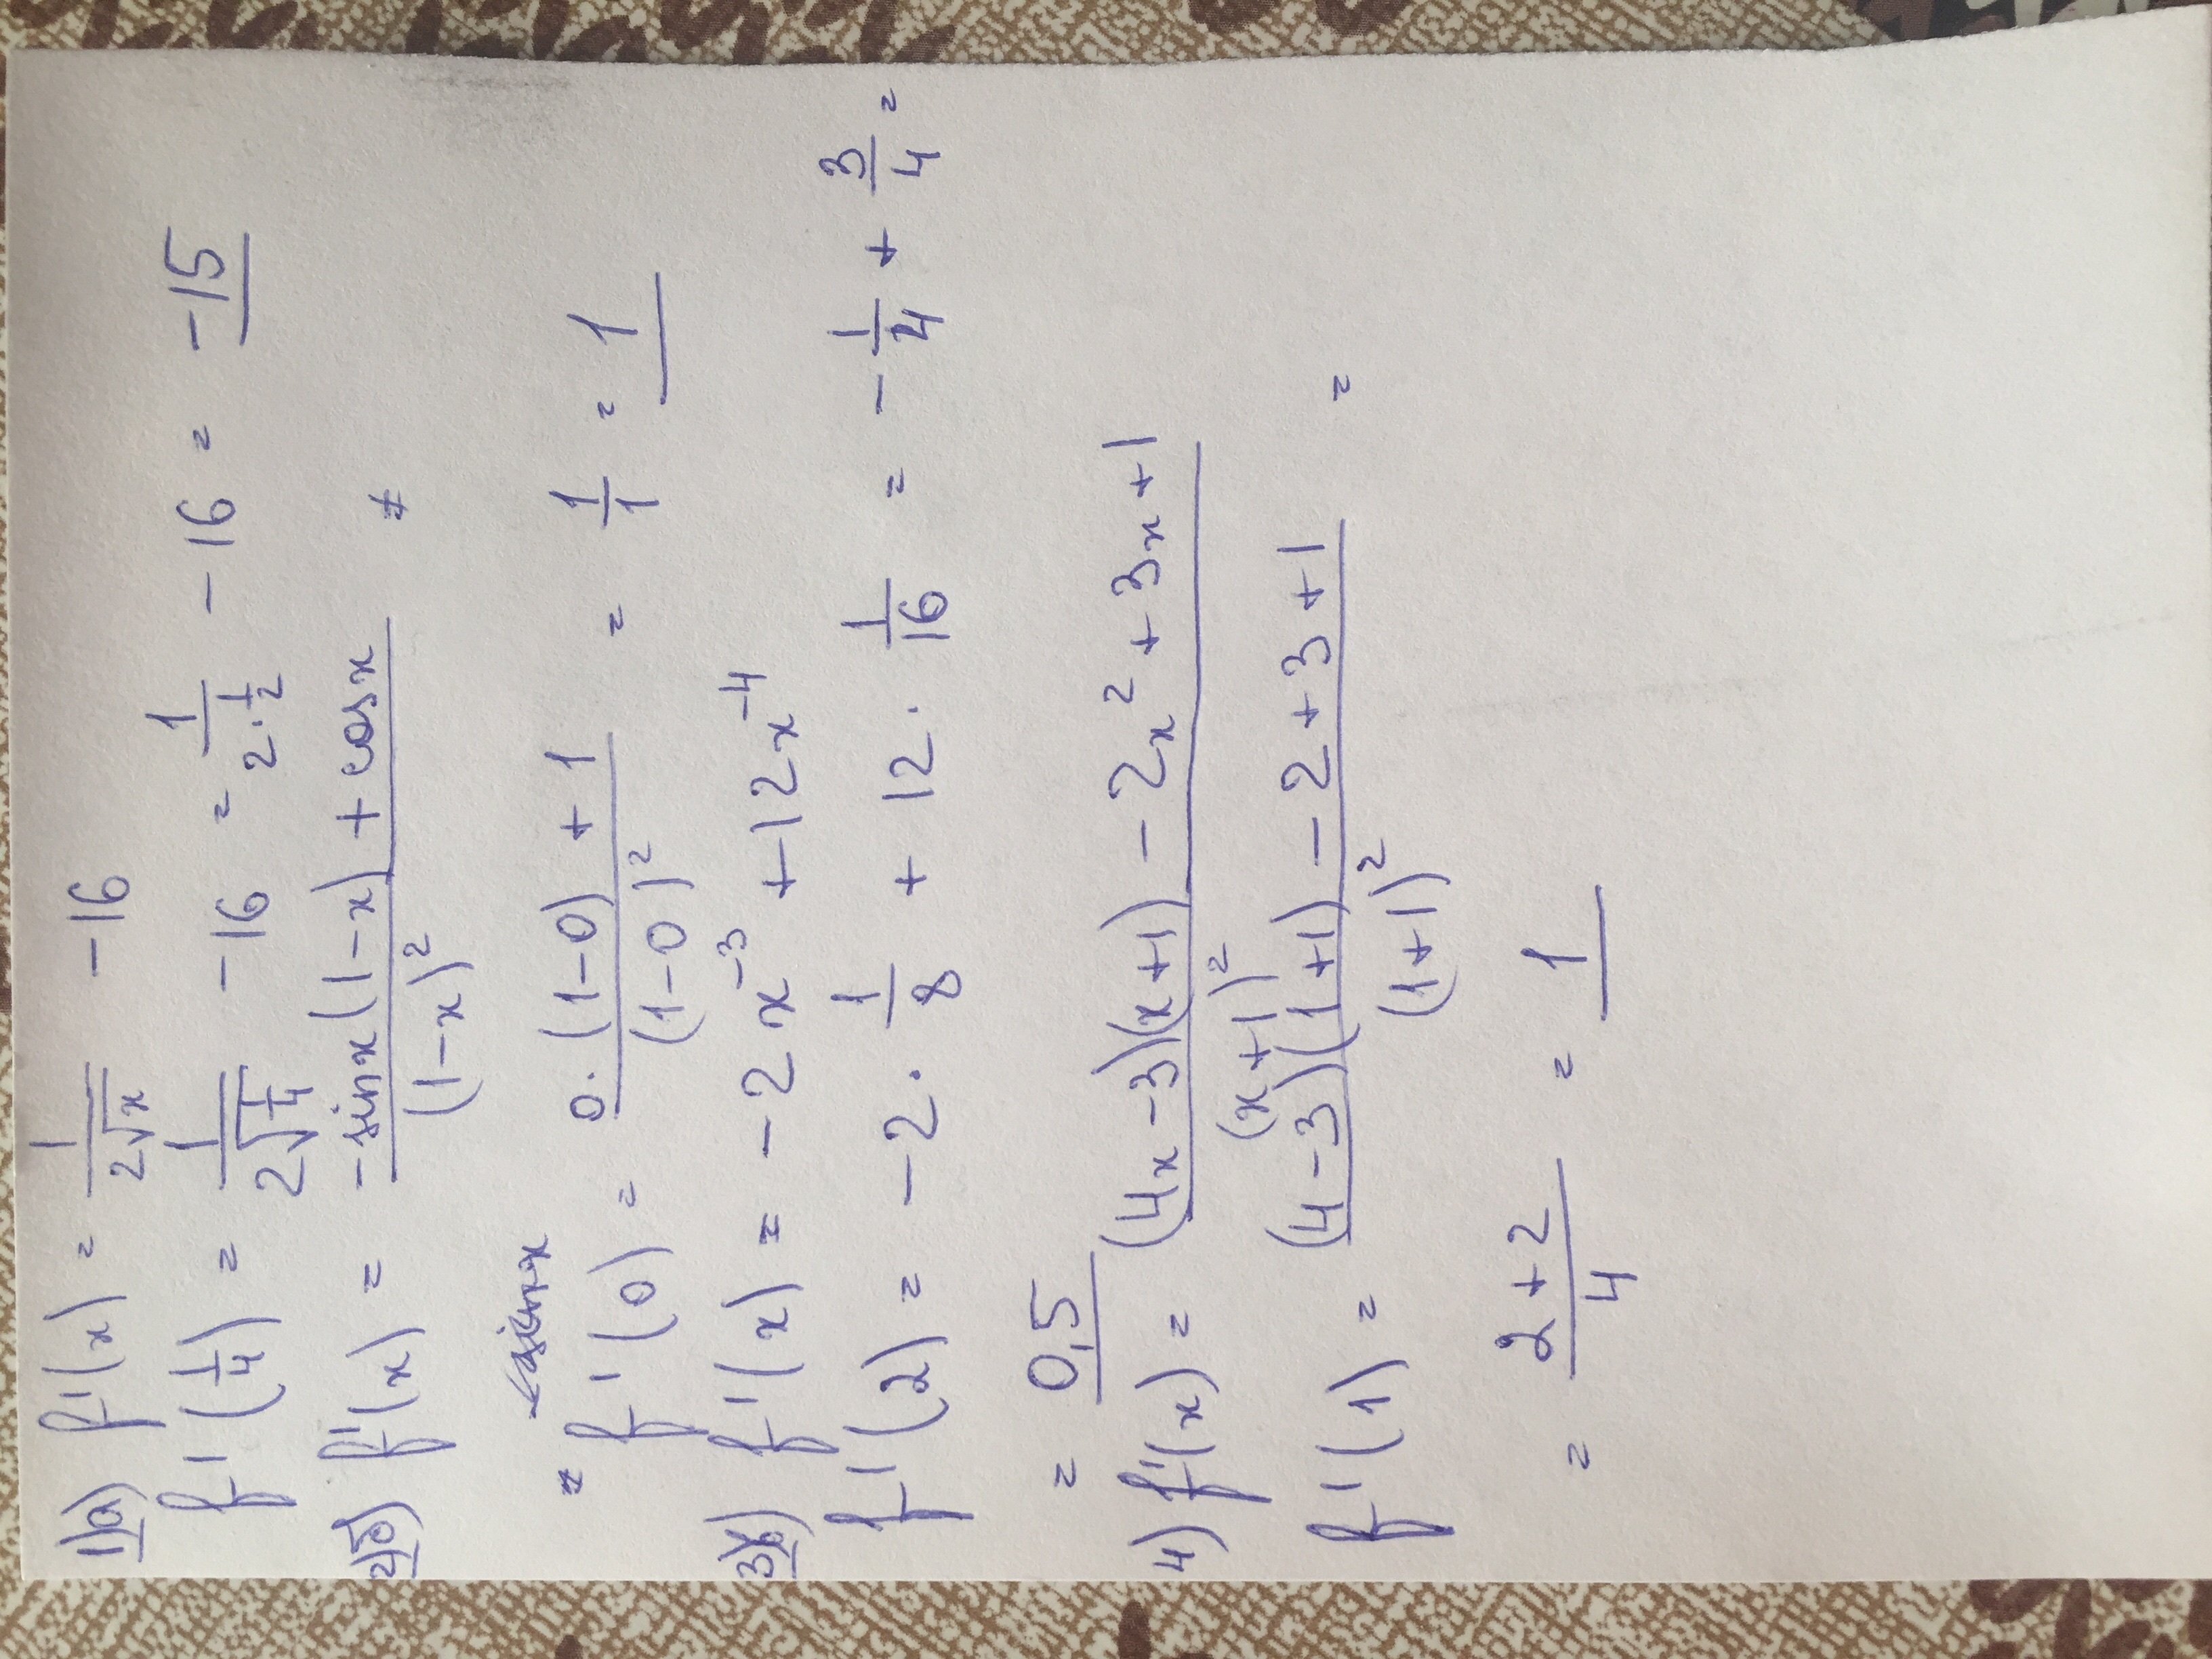 1)а) f'(x) = 1/(2√x) - 16
f'(1/4) = 1/(2√(1/4)) - 16 = 1/(2·1/2) - 16 = -15
2)б) f'(x) = (-sinx(1-x) + cosx)/(1-x)² =
=
f'(0) = (0·(1-0) + 1)/(1-0)² = 1/1 = 1
3) f'(x) = -2x⁻³ + 12x⁻⁴
f'(2) = -2·1/8 + 12·1/16 = -1/4 + 3/4 =
= 0,5
4) f'(x) = ((4x-3)(x+1) - 2x² + 3x + 1)/(x+1)²
f'(1) = ((4-3)(1+1) - 2 + 3 + 1)/(1+1)² =
= (2+2)/4 = 1